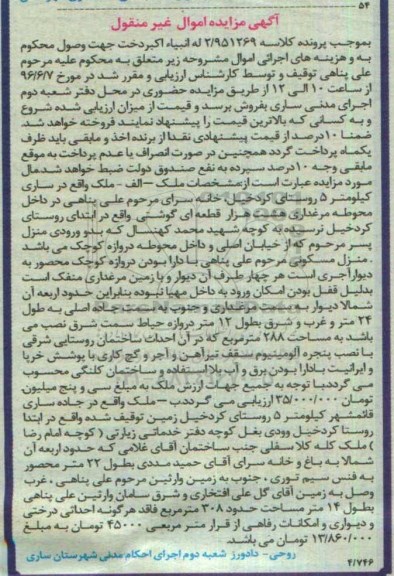 ۵۴
آگهی مزایده اموال غیر منقول
بموجب پرونده کلاسه ۲/۹۵۱۲۶۹ له انبیاء اکبردخت جهت وصول محکوم
به و هزینه های اجرائی اموال مشروحه زیر متعلق به محکوم علیه مرحوم
علی پناهی توقیف و توسط کارشناس ارزیابی و مقرر شد در مورخ ۹۶/۶/۷
از ساعت ۱۰ الی ۱۲ از طریق مزایده حضوری در محل دفتر شعبه دوم
اجرای مدنی ساری بفروش برسد و قیمت از میزان ارزیابی شده شروع
و به کسانی که بالاترین قیمت را پیشنهاد نمایند فروخته خواهد شد.
ضمنا ۱۰ درصد از قیمت پیشنهادی نقدا از برنده اخذ و مابقی باید ظرف
یکماه پرداخت گردد همچنین در صورت انصراف یا عدم پرداخت به موقع
مابقی وجه ۱۰ درصد سپرده به نفع صندوق دولت ضبط خواهد شد.مال
مورد مزایده عبارت است از:مشخصات ملک – الف – ملک واقع در ساری
کیلومتر ۵ روستای کردخیل، خانه سرای مرحوم علی پناهی در داخل
محوطه مرغداری هزار قطعه ای گوشتی واقع در ابتدای روستای
کردخیل نرسیده به کوچه شهید محمد کهنسال که بدو ورودی منزل
پسر مرحوم که از خیابان اصلی و داخل محوطه دروازه کوچک می باشد
. منزل مسکونی مرحوم علی پناهی با دارا بودن دروازه کوچک محصور به
دیوار آجری است هر چهار طرف آن دیوار و با زمین مرغداری منفک است
بدلیل قفل بودن امکان ورود به داخل مهیا نبوده بنابراین حدود اربعه آن
شمالا دیوار به سمت مرغداری و جنوب به سمت جاده اصلی به طول
۲۴ متر و غرب و شرق بطول ۱۲ متر دروازه حیاط سمت شرق نصب می
باشد به مساحت ۲۸۸ مترمربع که در آن احداث ساختمان روستایی شرقی
با نصب پنجره آلومینیوم سقف تیرآهن و آجر و گچ کاری با پوشش خرپا
و ایرانیت با دارا بودن برق و آب بلا استفاده و ساختمان کلنگی محسوب
می گردد با توجه به جمیع جهات ارزش ملک به مبلغ سی و پنج میلیون
تومان ۳۵/۰۰۰/۰۰۰ ارزیابی می گردد.ب – ملک واقع در جاده ساری
قائمشهر کیلومتر ۵ روستای کردخیل زمین توقیف شده واقع در ابتدا
روستا کردخیل وودی بغل کوچه دفتر خدماتی زیارتی ( کوچه امام رضا
) ملک کله کلا سفلی جنب ساختمان آقای غلامی که حدود اربعه آن
شمالا به باغ و خانه سرای آقای حمید مددی بطول ۲۲ متر محصور
به فنس سیم توری ، جنوب به زمین وارثین مرحوم علی پناهی ، غرب
وصل به زمین آقای گل علی افتخاری و شرق سامان وارثین علی پناهی
بطول ۱۴ متر مساحت حدود ۳۰۸ مترمربع فاقد هرگونه احداثی درختی
و دیواری و امکانات رفاهی از قرار متر مربعی ۴۵۰۰۰ تومان به مبلغ
۱۳/۸۶۰/۰۰۰ تومان می باشد.
روحی- دادورز شعبه دوم اجرای احکام مدنی شهرستان ساری
۴/۷۴۶